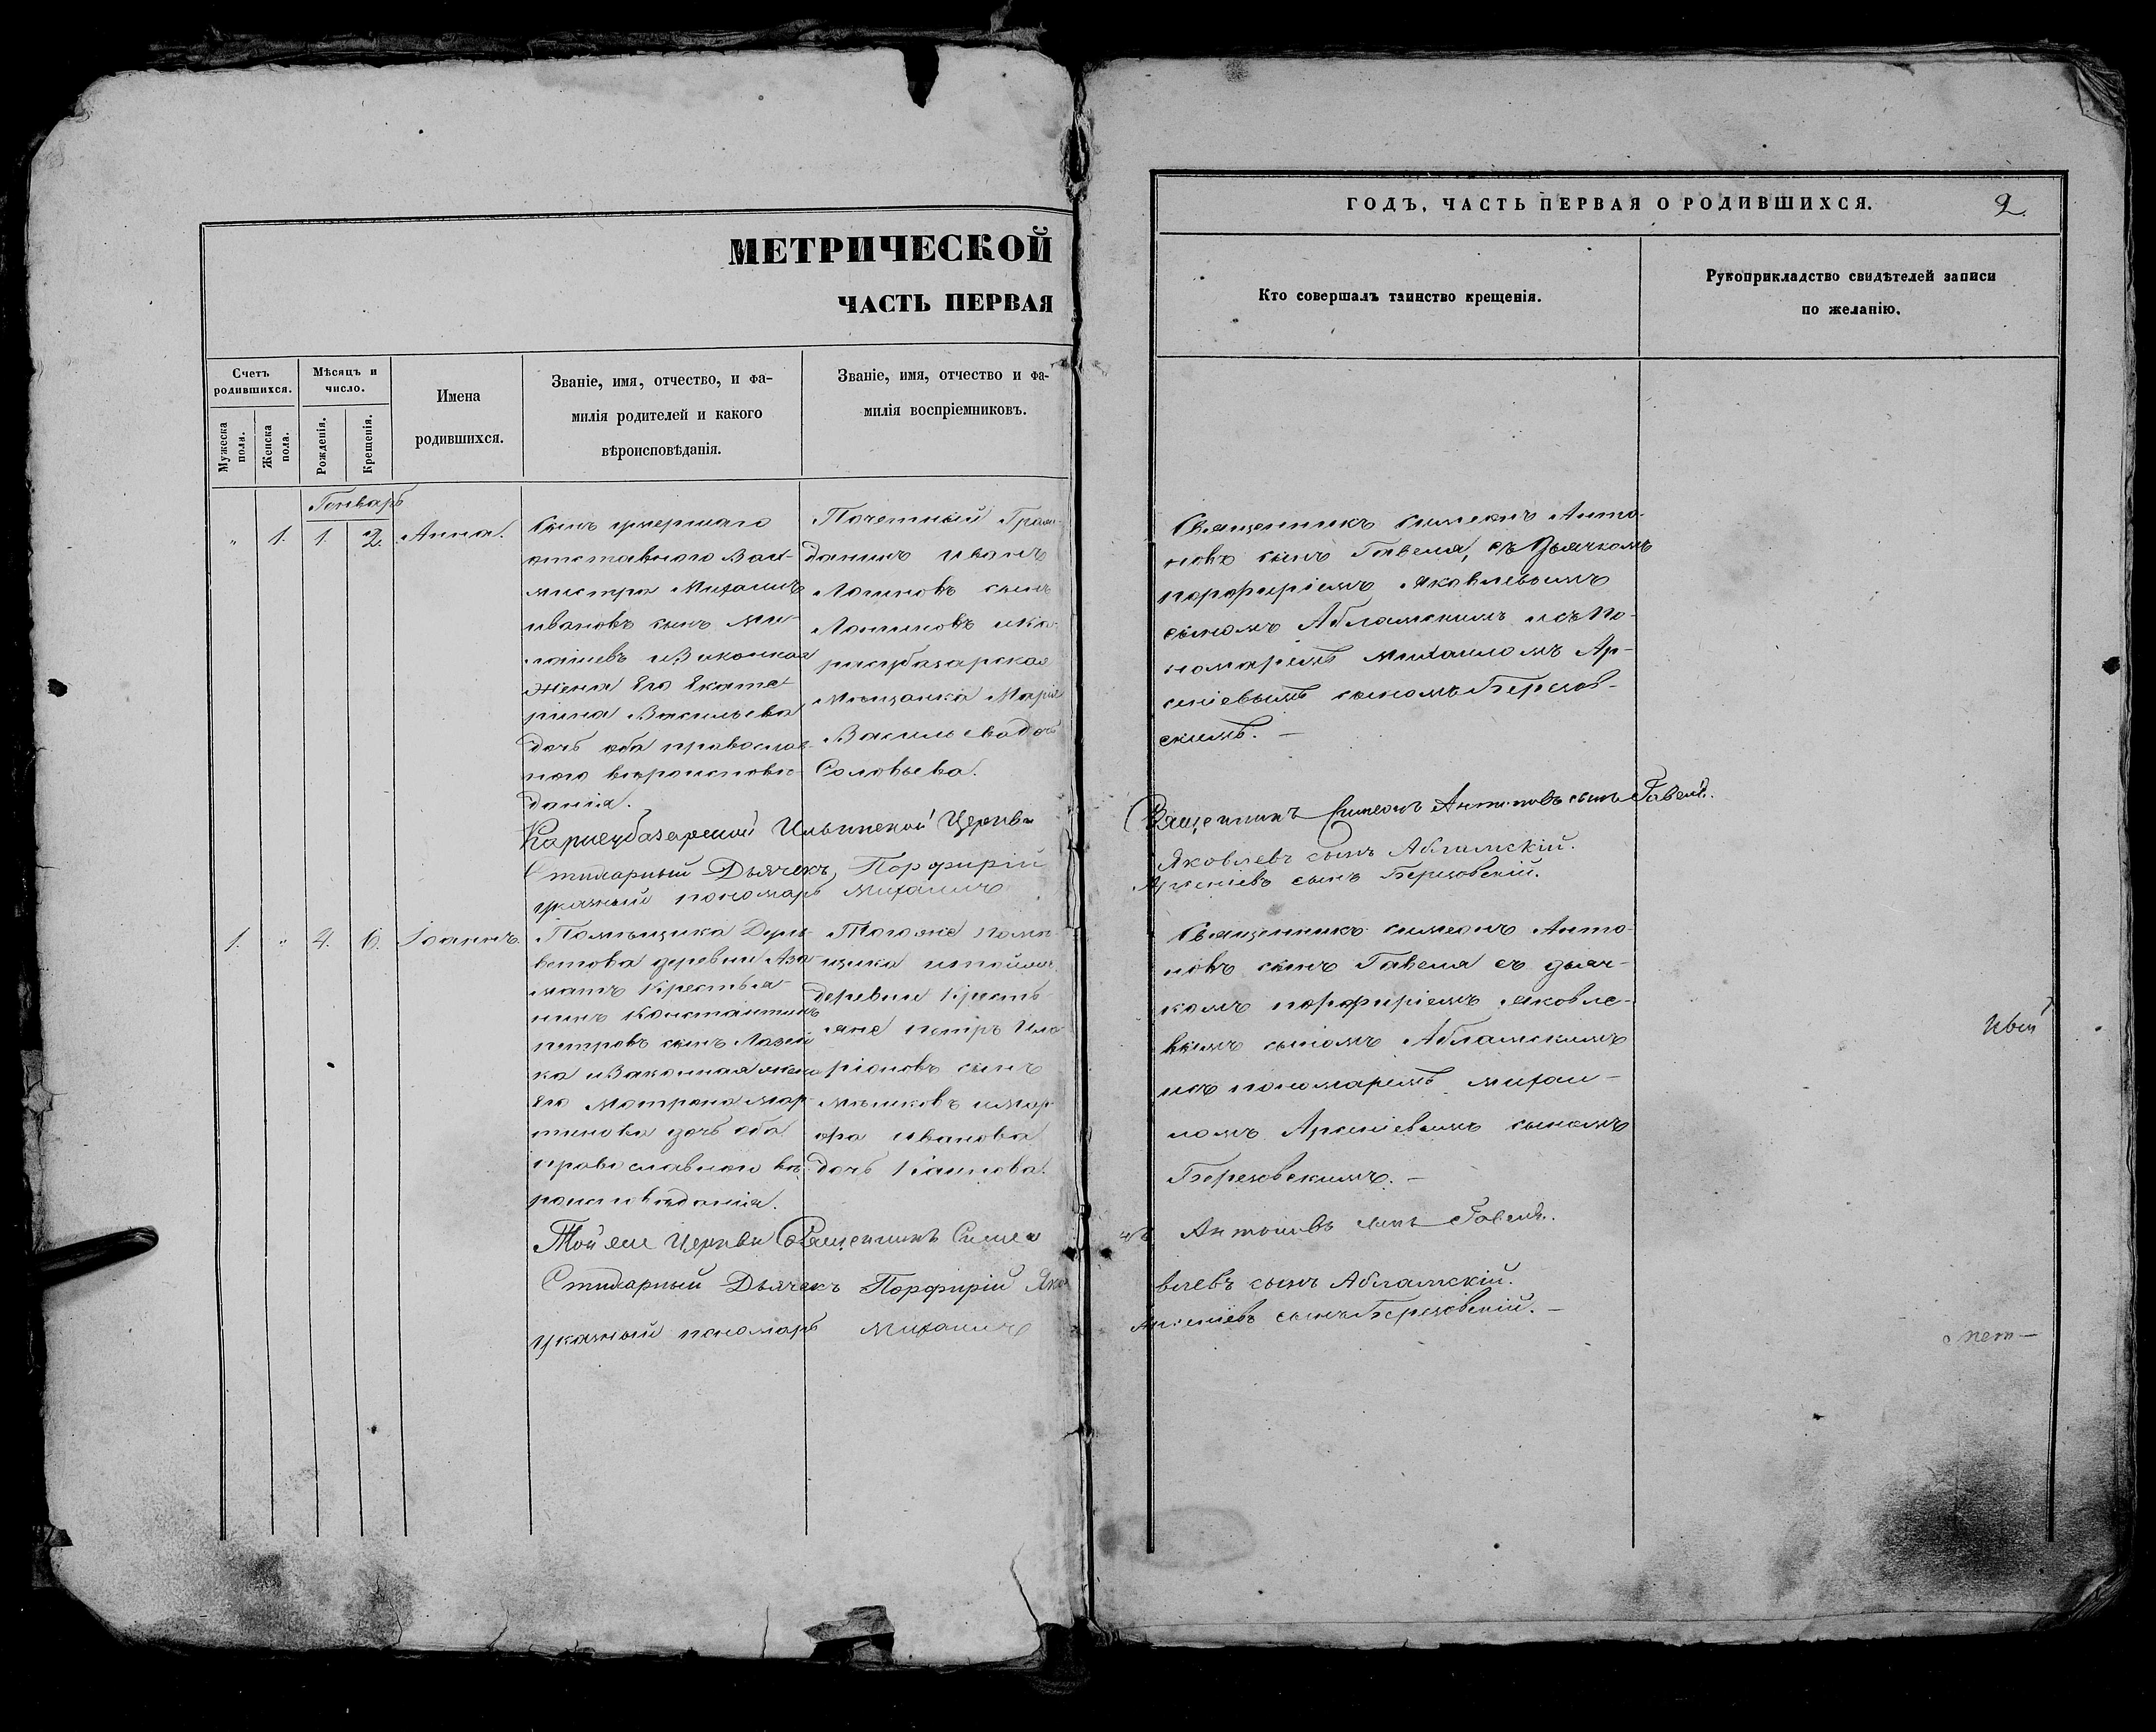 МЕТРИЧЕСКОЙ
ЧАСТЬ ПЕРВАЯ
Счетъ родившихся.
Мужеска пола.
Женска пола.
Мѣсяцъ и число.
Рожденія.
Крещенія.
Имена
родившихся.
Званіе, имя, отчество, и фа-
милія родителей и какого
вѣроисповѣданія.
Званіе, имя, отчество и фа-
милія воспріемниковъ.
Генварь
" 1. 1. 2. Анна.
Сынъ умершаго
отставнаго Вах-
мистра Михаилъ
Ивановъ сынъ Ми-
жена Его Екате-
рина Васильева
дочь оба православ-
наго вѣроисповѣ-
данія.
Почетный Граж-
данинъ Иванъ
Логиновъ сынъ
Логиновъ и Ка-
расубазарская
Мѣщанка Марія
Васильева дочь
Соловьева.
Карасубазарской Ильинской Церкви
Стихарный Дьячекъ, Порфирій
указный пономарь Михаилъ
1. " 4. 6. Іоаннъ.
Помѣщика
деревни Аза-
матъ Крестья-
нинъ Константинъ
Петровъ сынъ
ка и Законная жена
Его Матрона Мар-
тинова дочь оба
православнаго вѣ-
роисповѣданія.
Того же помѣ-
щика и той же
деревни Кресть-
яне Петръ Ила-
ріоновъ сынъ
Ивановна
дочь
Той же Церкви Священникъ Симео
Стихарный Дьячекъ Порфирій Яко
указный пономарь Михаилъ
ГОДЪ, ЧАСТЬ ПЕРВАЯ О РОДИВШИХСЯ.
2.
Кто совершалъ таинство крещенія.
Рукоприкладство свидѣтелей записи
по желанію.
Священникъ Симеонъ Анто-
новъ сынъ Гавеля, съ Дьячкомъ
Порфиріемъ Яковлевымъ
сыномъ Абламскимъ и съ По-
номаремъ Михаиломъ Ар-
сеніевымъ сыномъ Березов-
скимъ. —
Священникъ Симеонъ Антоновъ сынъ Гавеля.
Яковлевъ сынъ Абламскій.
Арсеніевъ сынъ Березовскій.
Священникъ Симеонъ Анто-
новъ сынъ Гавеля съ дьяч-
комъ Порфиріемъ Яковле-
вымъ сыномъ Абламскимъ
и съ пономаремъ Михаи-
ломъ Арсеніевымъ сыномъ
Березовскимъ. —
нъ Антоновъ сынъ Гавеля.
влевъ сынъ Абламскій.
Арсеніевъ сынъ Березовскій. —